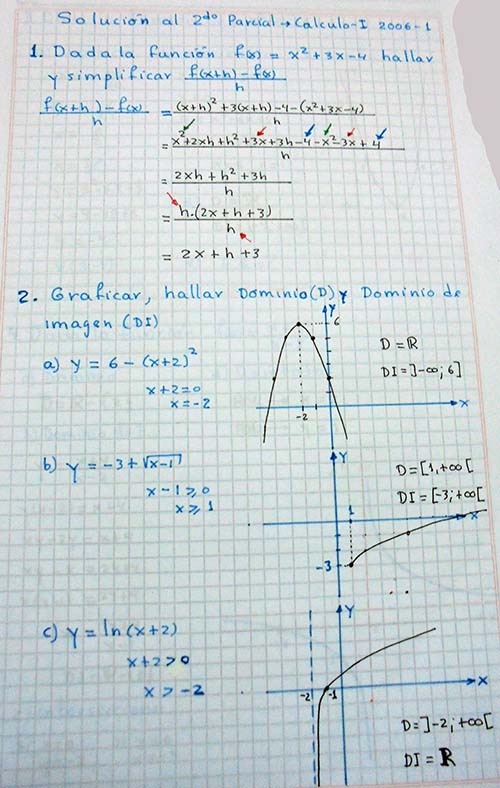 Solución al 2do Parcial → Calculo-I 2006-1
1. Dada la función f(x) = x² + 3x - 4 hallar
y simplificar (f(x+h) - f(x))/h
(f(x+h) - f(x))/h = ((x+h)² + 3(x+h) - 4 - (x² + 3x - 4))/h
= (x² + 2xh + h² + 3x + 3h - 4 - x² - 3x + 4)/h
= (2xh + h² + 3h)/h
= (h·(2x + h + 3))/h
= 2x + h + 3
2. Graficar, hallar Dominio (D) y Dominio de
imagen (DI)
a) y = 6 - (x+2)²
x+2=0
x=-2
Y
6
-2
X
D = ℝ
DI = ]-∞; 6]
b) y = -3 + √x-1
x - 1 ⩾ 0
x ⩾ 1
Y
1
-3
X
D = [1, +∞[
DI = [-3; +∞[
c) y = ln(x+2)
x+2 > 0
x > -2
Y
-2
-1
X
D = ]-2; +∞[
DI = ℝ